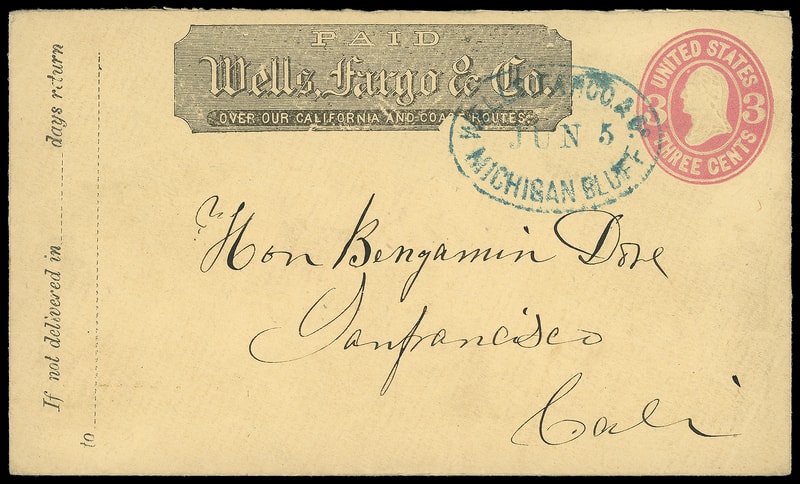 If not delivered in days return
to
PAID
Wells, Fargo & Co.
OVER OUR CALIFORNIA AND COAST ROUTES.
WELLS, FARGO & Co.
JUN 5
MICHIGAN BLUFF
UNITED STATES
3 3
THREE CENTS
Hon Bengamin Dore
Sanfrancisco
Cali